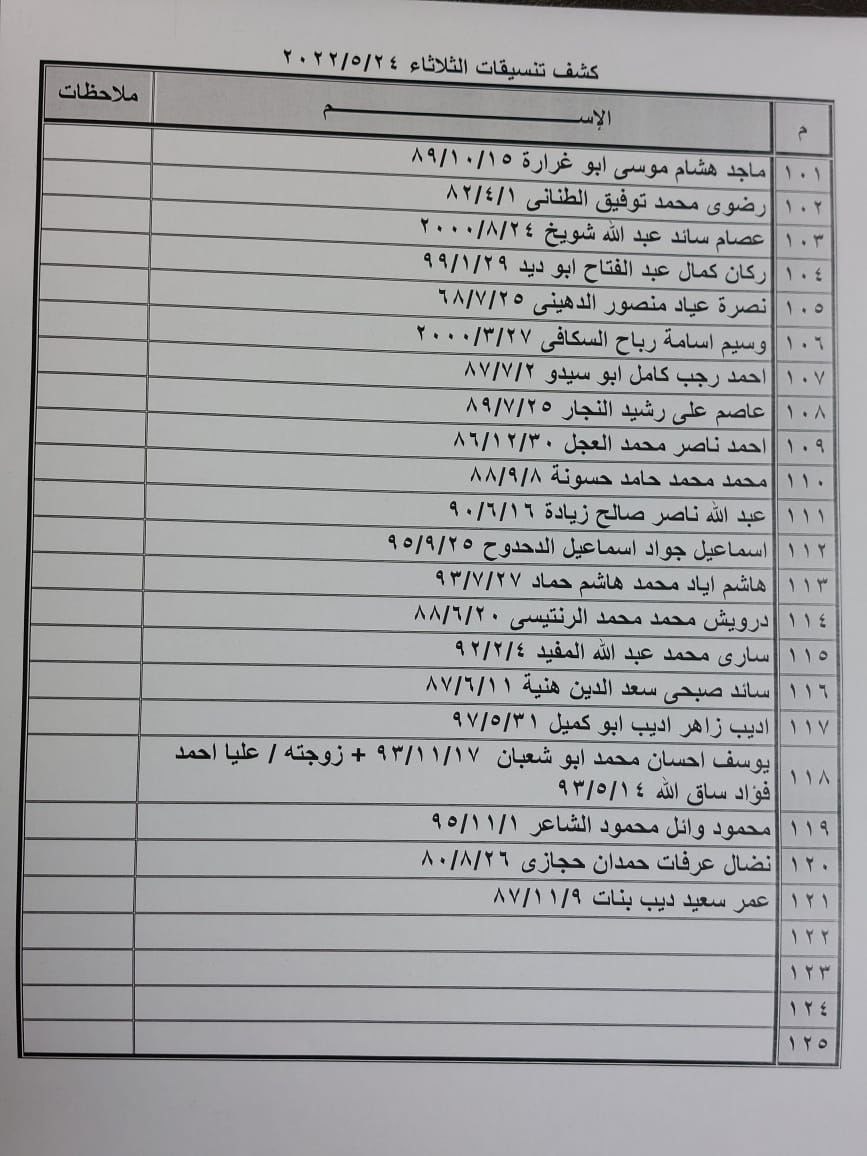 كشف تنسيقات الثلاثاء ٢٠٢٢/٥/٢٤
م الإســـــــم ملاحظات
١٠١ ماجد هشام موسى ابو غرارة ٨٩/١٠/١٥
١٠٢ رضوى محمد توفيق الطنانى ٨٢/٤/١
١٠٣ عصام سائد عبد الله شويخ ٢٠٠٠/٨/٢٤
١٠٤ ركان كمال عبد الفتاح ابو ديد ٩٩/١/٢٩
١٠٥ نصرة عياد منصور الدهينى ٦٨/٧/٢٥
١٠٦ وسيم اسامة رباح السكافى ٢٠٠٠/٣/٢٧
١٠٧ احمد رجب كامل ابو سيدو ٨٧/٧/٢
١٠٨ عاصم على رشيد النجار ٨٩/٧/٢٥
١٠٩ احمد ناصر محمد العجل ٨٦/١٢/٣٠
١١٠ محمد محمد حامد حسونة ٨٨/٩/٨
١١١ عبد الله ناصر صالح زيادة ٩٠/٦/١٦
١١٢ اسماعيل جواد اسماعيل الدحدوح ٩٥/٩/٢٥
١١٣ هاشم اياد محمد هاشم حماد ٩٣/٧/٢٧
١١٤ درويش محمد محمد الرنتيسى ٨٨/٦/٢٠
١١٥ سارى محمد عبد الله المفيد ٩٢/٢/٤
١١٦ سائد صبحى سعد الدين هنية ٨٧/٦/١١
١١٧ اديب زاهر اديب ابو كميل ٩٧/٥/٣١
١١٨ يوسف احسان محمد ابو شعبان ٩٣/١١/١٧ + زوجته / عليا احمد
فؤاد ساق الله ٩٣/٥/١٤
١١٩ محمود وائل محمود الشاعر ٩٥/١١/١
١٢٠ نضال عرفات حمدان حجازى ٨٠/٨/٢٦
١٢١ عمر سعيد ديب بنات ٨٧/١١/٩
١٢٢
١٢٣
١٢٤
١٢٥